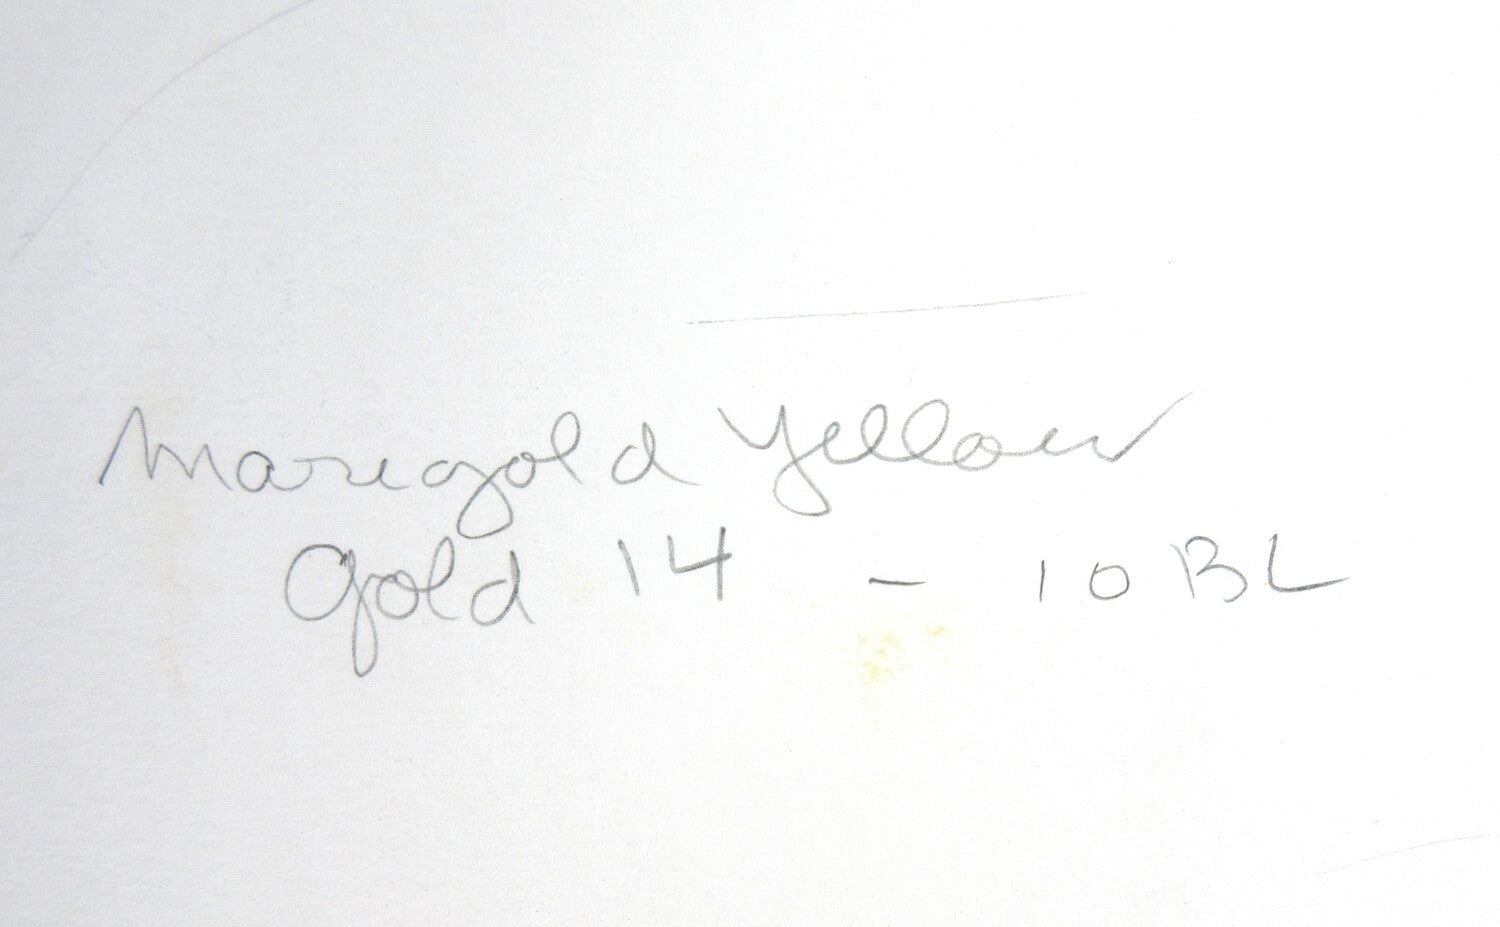 Marigold Yellow
Gold 14 - 10 BL